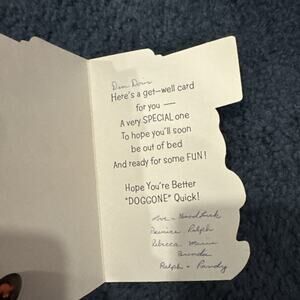 Here's a get-well card
for you —
A very SPECIAL one
To hope you'll soon
be out of bed
And ready for some FUN!
Hope You're Better
"DOGGONE" Quick!
Love - Good Luck
Ralph
Rebecca
Ralph -